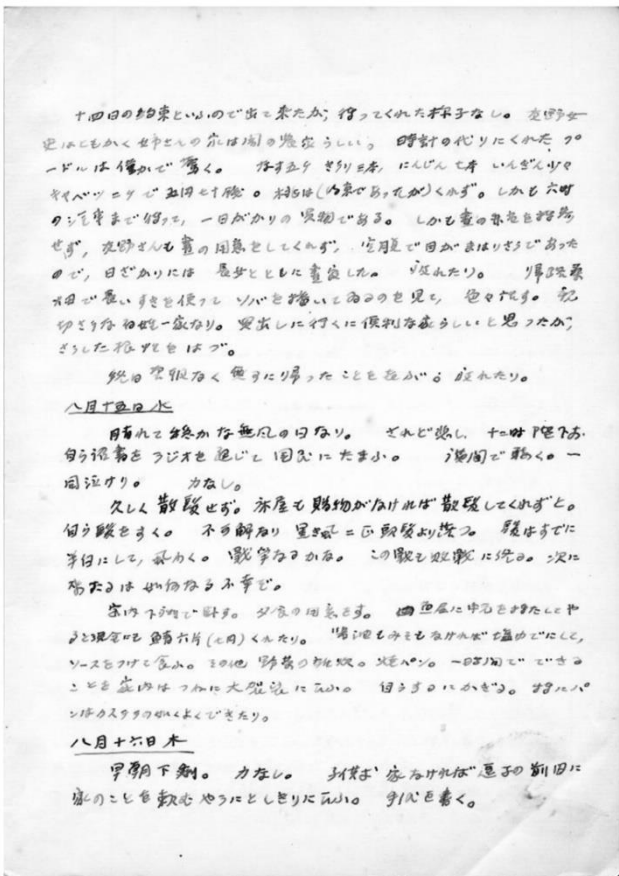 十四日の約束といふので出て来たが、待ってくれた様子なし。友野女
史はともかく姉さんの家は閣の農家らしい。時計の代りにくれたプ
ードルは僅かで驚く。なす五ケ きうり三本、にんじん七本 いんげん少々
キャベツ二ケで五円七十銭。桃は(約束であったが)くれず。しかも六時
の汽車まで待って、一日がかりの買物である。しかも昼の弁当を持参
せず、友野さんも昼の用意をしてくれず、空腹で目がまはりさうであった
ので、日ざかりには長女とともに昼寝した。疲れたり。帰途
で長いすきを使ってソバを播いてゐるのを見て、色々話す。親
切さうな一家なり。買出しに行くに便利な家らしいと思ったが、
さうした根性をはづ。
終日空襲なく無事に帰ったことをよろこぶ。疲れたり。
八月十五日水
晴れて穏かな無風の日なり。されど悲し、十二時陛下お
自ら詔書をラジオを通じて国民にたまふ。で聴く。一
同泣けり。力なし。
久しく散髪せず。床屋も賜物がなければ散髪してくれずと。
自ら髪をすく。不可解なり 黒き虱二匹頭髪より落つ。髪はすでに
半白にして、虱わく。戦争なるかな。この戦も敗戦に終る。次に
来たるは如何なる不幸ぞ。
家内下痢で臥す。夕食の用意をす。魚屋に中元を持たしてや
ると現金にも鯖六片(七円)くれたり。醤油もみそもなければ塩ゆでにして、
ソースをつけて食ふ。その他野菜の煮、焼パン。一時間でできる
ことを家内はつねに大袈裟に云ふ。自らするにかぎる。特にパ
ンはカステラの如くよくできたり。
八月十六日木
早朝下痢。力なし。子供等家なければ逗子の前田に
家のことを頼むやうにとしきりに云ふ。手紙を書く。